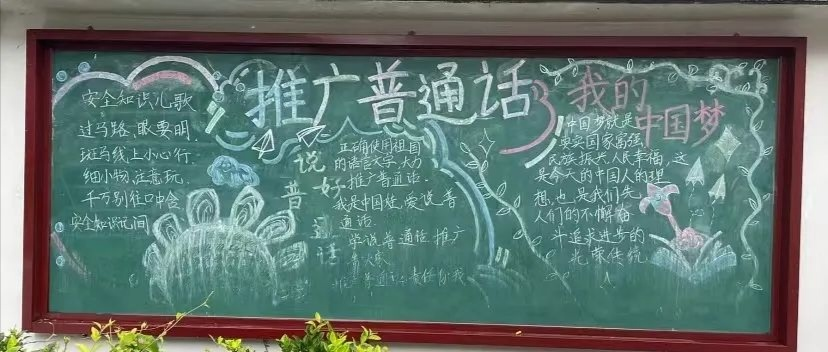 安全知识儿歌
过马路、眼要明,
斑马线上小心行.
细小物,注意玩,
千万别往口中含
安全知识记心间
推广普通话
说好普通话
正确使用祖国
的语言文字,大力
推广普通话.
我是中国娃,爱说普
通话.
学说普通话 推广
我的中国梦
中国梦就是
要实国家富强
民族振兴、人民幸福,这
是今天的中国人的理
想,也是我们先
人们的不懈奋
斗追求进步的
光荣传统